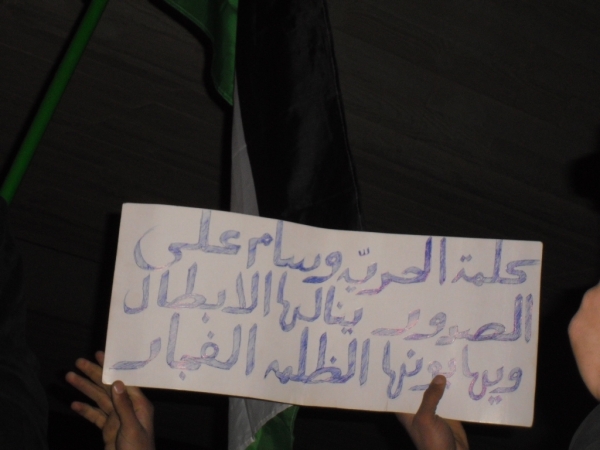 كلمة الحريّه وسام على
الصدور ينالها الابطال
ويهابونها الظلمه الفجار